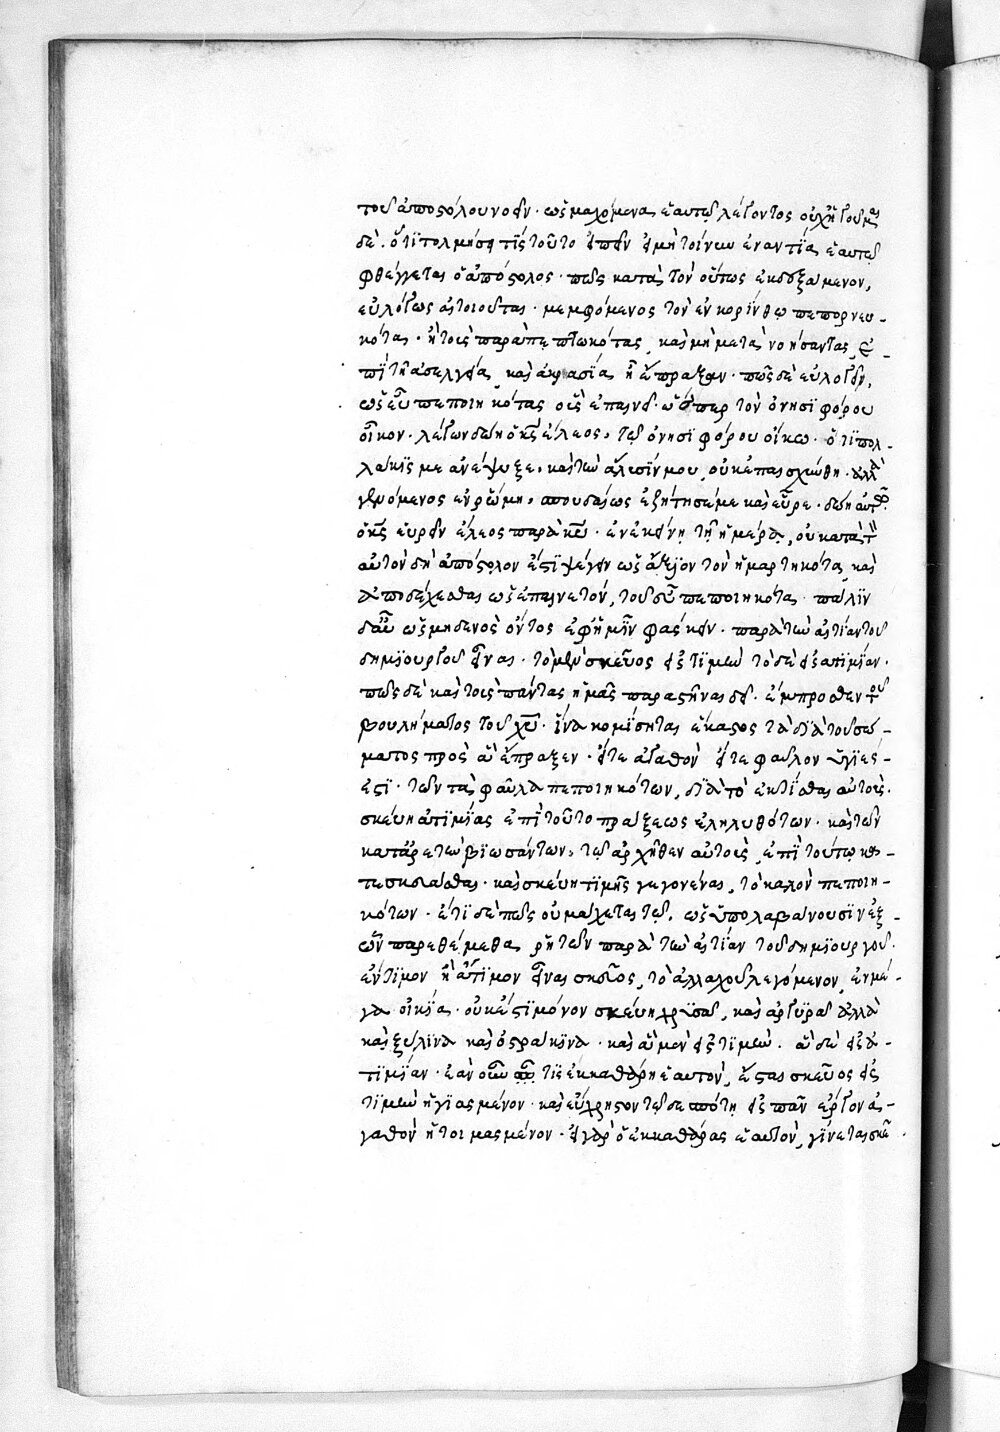 τοῦ ἀποστόλου νοεῖν· ὡς μαχόμενα ἑαυτῷ λέγοντος οὐχ ἡγοῦμαι
δέ. ὅτι τολμήσει τις τοῦτο εἰπεῖν εἰ μὴ τοίνυν ἐναντία ἑαυτῷ
φθέγγεται ὁ ἀπόστολος· πῶς κατὰ τὸν οὕτως ἐκδεξάμενον,
εὐλόγως αἰτιᾶται· μεμφόμενος τὸν ἐν κορίνθω πεπορνευ-
κότα· ἢ τοῖς παραπεπτωκότας, καὶ μὴ μετανοήσαντας, ἐ-
πὶ τῆ ἀσελγεία, καὶ ἀκρασία ἧ ἔπραξαν· πῶς δὲ εὐλογεῖ,
ὡς εὖ πεποιηκότας οἷς ἐπαινεῖ· ὥσπερ τὸν ὀνησιφόρου
οἶκον· λέγων δώη ὁ κς ἔλεος, τῷ ὀνησιφόρου οἴκω· ὅτι πολ-
λάκις με ἀνέψυξε, καὶ τὴν ἅλυσίν μου, οὐκ ἐπαισχύνθη· ἀλλὰ
γενόμενος ἐν ῥώμη, σπουδαίως ἐζήτησέ με καὶ εὗρε· δώη αὐτῷ
ὁ κς εὑρεῖν ἔλεος παρὰ κυ· ἐν ἐκείνη τῆ ἡμέρα, οὐ κατὰ τὸν
αὐτὸν δὴ ἀπόστολον ἐστὶ ψέγειν ὡς ἄξιον τὸν ἡμαρτηκότα, καὶ
ἀποδέχεσθαι ὡς ἐπαινετὸν, τοῦ εὖ πεποιηκότα· πάλιν
δ' αὖ ὡς μηδενὸς ὄντος ἐφ' ἡμῖν φάσκειν· παρὰ τὴν αἰτίαν τοῦ
δημιουργοῦ εἶναι· τὸ μὲν σκεῦος εἰς τιμὴν τὸ δὲ εἰς ἀτιμίαν·
πῶς δὲ καὶ τοῖς πάντας ἡμᾶς παραστῆναι δεῖ· ἔμπροσθεν τοῦ
βουλήματος τοῦ χυ· ἵνα κομίσηται ἕκαστος τὰ διὰ τοῦ σώ-
ματος πρὸς ἃ ἔπραξεν· εἴτε ἀγαθὸν εἴτε φαῦλον ὑγιές
ἐστι· τῶν τὰ φαῦλα πεποιηκότων, διὰ τὸ ἐκτίσθαι αὐτοὺς·
σκεύη ἀτιμίας ἐπὶ τοῦτο πράξεως ἐληλυθότων· καὶ τῶν
κατ' ἀρετὴν βιωσάντων, τῷ ἀρχῆθεν αὐτοὺς, ἐπὶ τούτω κα-
τεσκευᾶσθαι· καὶ σκεύη τιμῆς γεγονέναι, τὸ καλὸν πεποιη-
κότων· ἔτι δὲ πῶς οὐ μάχεται τῷ, ὡς ὑπολαβαίνουσιν ἐξ
ὧν παρεθέμεθα, ῥητῶν παρὰ τὴν αἰτίαν τοῦ δημιουργοῦ·
ἔντιμον ἢ ἄτιμον εἶναι σκεῦος, τὸ ἀλλαχοῦ λεγόμενον, ἐν με-
γάλη οἰκία· οὐκ ἔστι μόνον σκεύη χρυσᾶ, καὶ ἀργυρᾶ ἀλλὰ
καὶ ξύλινα καὶ ὀστράκινα· καὶ ἃ μὲν εἰς τιμὴν. ἃ δὲ εἰς ἀ-
τιμίαν· ἐὰν οὖν τις ἐκκαθάρη ἑαυτὸν, ἔσται σκεῦος εἰς
τιμὴν ἡγιασμένον· καὶ εὔχρηστον τῷ δεσπότη εἰς πᾶν ἔργον ἀ-
γαθὸν ἡτοιμασμένον· εἰ γὰρ ὁ ἐκκαθάρας ἑαυτὸν, γίνεται σκεῦ